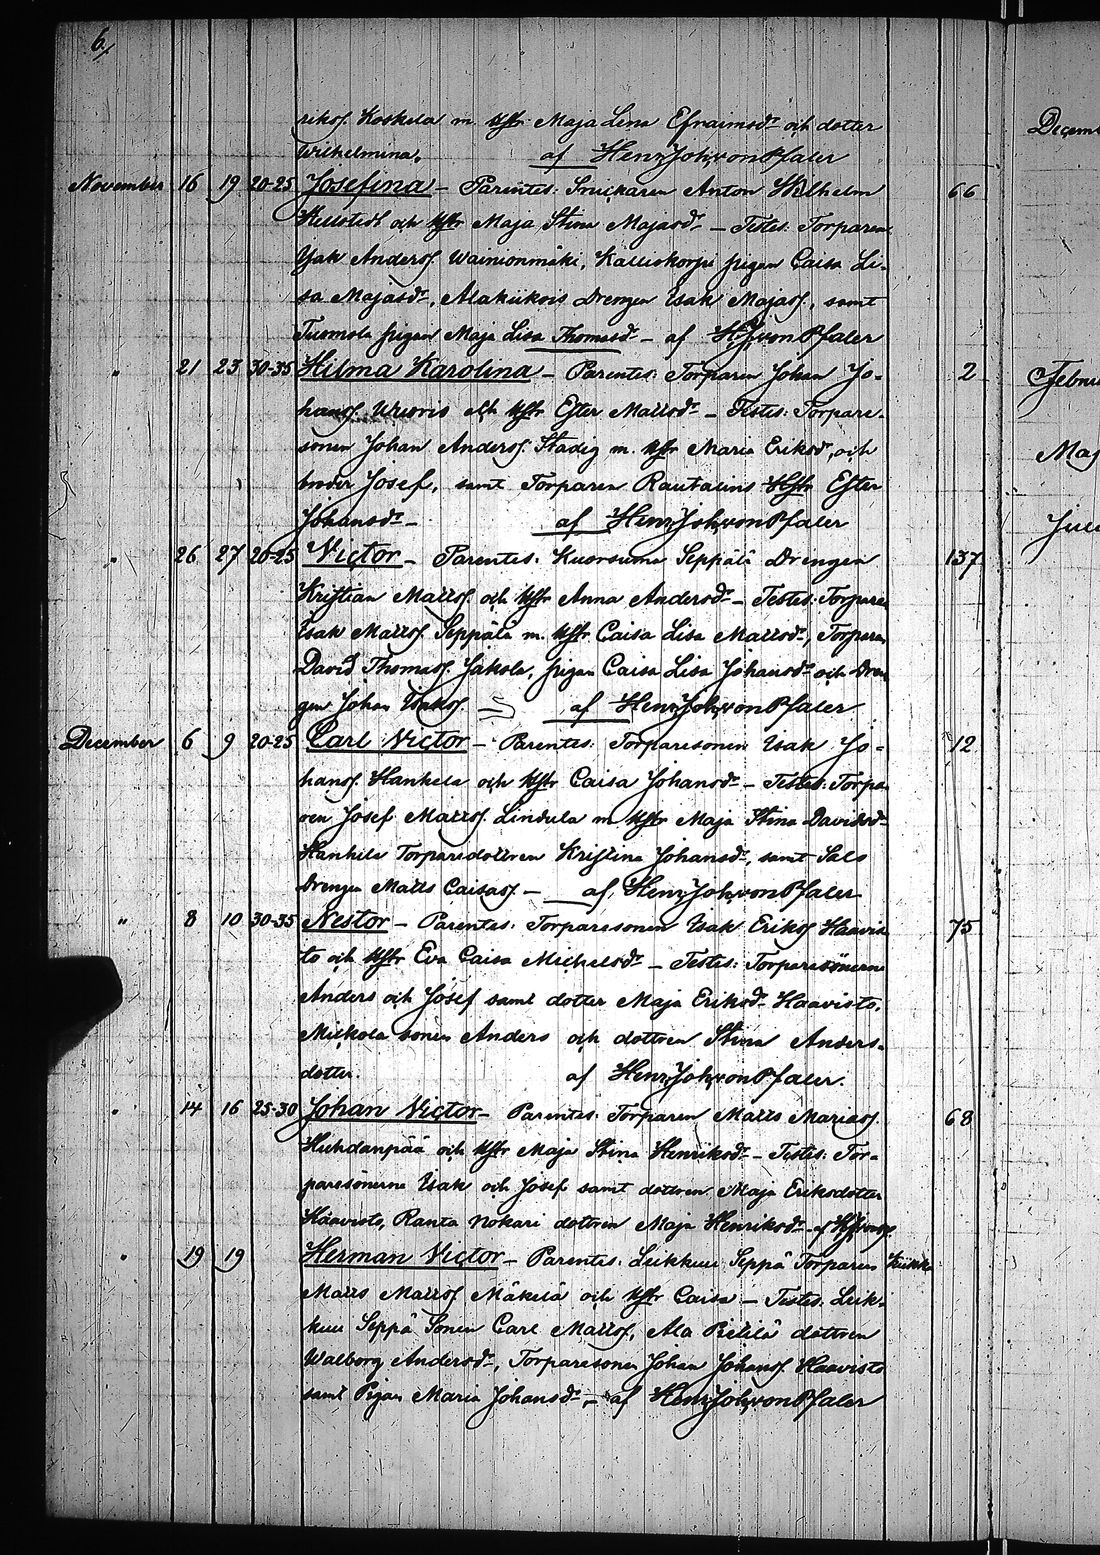 6/
rikss. Koskela m. Hstr. Maja Lena Efraimsdr och dotter
Wilhelmina, af Henr. Joh. von Pfaler
November 16 19 20-25 Josefina – Parentes: Snickaren Anton Wilhelm 66
Hellstedt och Hstr Maja Stina Majasdr – Testes: Torparen
Isak Anderss. Wainionmäki, Kalliokorpi pigan Caisa Li-
sa Majasdr, Alakükois Drengen Isak Majass., samt
Tuomola pigan Maja Lisa Thomasdr – af H. J. von Pfaler
" 21 23 30-35 Hilma Karolina – Parentes: Torparen Johan Jo- 2
hanss. och Hstr Ester Mattsdr – Testes: Torpare-
sonen Johan Anderss. Stadig m. Hstr Maria Eriksdr, och
broder Josef, samt Torparen Rautalins Hstr Ester
Johansdr – af Henr. Joh. von Pfaler
" 26 27 20-25 Victor – Parentes: Kuorsuma Seppälä Drengen 137
Kristian Mattss. och Hstr Anna Andersdr – Testes: Torparen
Isak Mattss. Seppälä m. Hstr Caisa Lisa Mattsdr, Torparen
David Thomass. Jakola, pigan Caisa Lisa Johansdr och Dren
gen Johan Isakss. – af Henr. Joh. von Pfaler
December 6 9 20-25 Carl Victor – Parentes: Torparesonen Isak Jo- 12
hanss. Hankela och Hstr Caisa Johansdr – Testes: Torpa
ren Josef Mattss. Lindula m Hstr Maja Stina Davidsdr
Hanhila Torparedottren Kristina Johansdr, samt Salo
Drengen Matts Caisass – af Henr. Joh. von Pfaler
" 8 10 30-35 Nestor – Parentes: Torparesonen Isak Erikss Haavis 75
to och Hstr Eva Caisa Michelsdr – Testes: Torparesönerne
Anders och Josef samt dotter Maja Eriksdr Haavisto,
Mickola sonen Anders och dottren Stina Anders-
dotter. af Henr. Joh. von Pfaler.
" 14 16 25-30 Johan Victor – Parentes: Torparen Matts Mariass. 68
Huhdanpää och Hstr Maja Stina Henriksdr – Testes: Tor-
paresönerne Isak och Josef samt dottren Maja Eriksdotter
Haavisto, Ranta Nokari dottren Maja Henriksdr – af
" 19 19 Herman Victor – Parentes: Leikkuu Seppä Torparen
Matts Mattss Mäkelä och Hstr Caisa – Testes: Leik-
kuu Seppä Sonen Carl Mattss, Ala Piettilä dottren
Walborg Andersdr, Torparesonen Johan Johanss. Haavisto
samt Pigan Maria Johansdr, – af Henr. Joh. von Pfaler
Decem
Febru
Maj